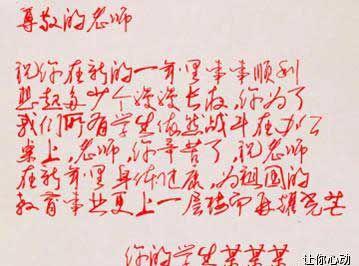 尊敬的老师
祝你在新的一年里事事顺利
想起多少个漫漫长夜，你为了
我们所有学生依然战斗在办公
桌上，老师，你辛苦了，祝老师
在新年里身体健康，为祖国的
教育事业更上一层楼而再耀光芒
你的学生某某某
让你心动